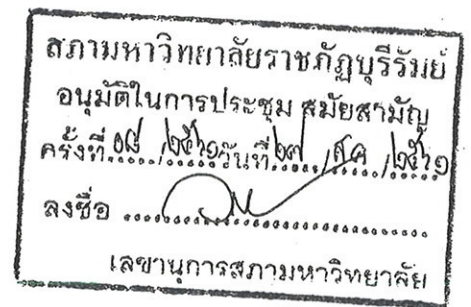 สภามหาวิทยาลัยราชภัฏบุรีรัมย์
อนุมัติในการประชุม สมัยสามัญ
ครั้งที่ ๐๘ / ๒๕๖๑ วันที่ ๒๗ / สค / ๒๕๖๑
ลงชื่อ
เลขานุการสภามหาวิทยาลัย